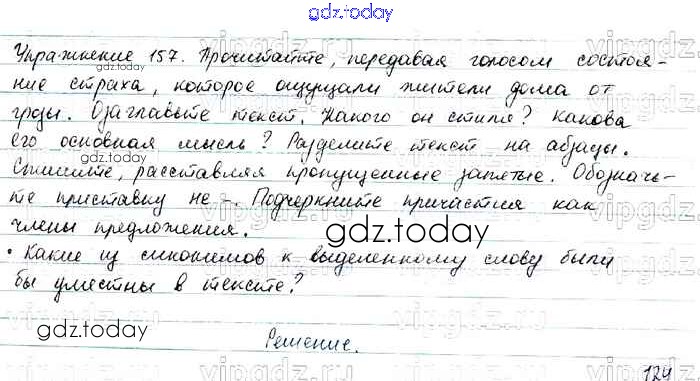 gdz.today
Упражнение 157. Прочитайте, передавая голосом состоя-
ние страха, которое ощущали жители дома от
gdz.today
грозы. Озаглавьте текст. Какого он стиля? Какова
его основная мысль? Разделите текст на абзацы.
gdz.today
Спишите, расставляя пропущенные запятые. Обозначь-
те приставку не-. Подчеркните причастия как
члены предложения.
gdz.today
• Какие из синонимов к выделенному слову были
бы уместны в тексте?
gdz.today
Решение.
vipgdz.ru
124